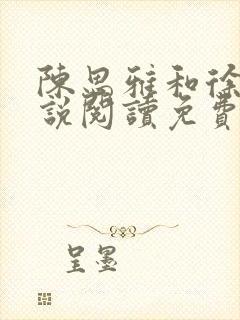 陳思雅和徐
說閱讀免費
呈墨